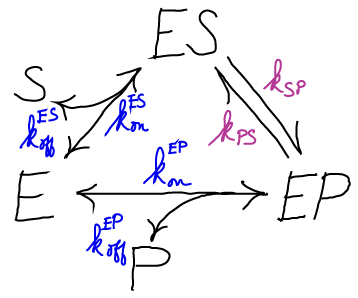 ES
S
k_off^ES
k_on^ES
k_SP
k_PS
k_on^EP
E
EP
k_off^EP
P